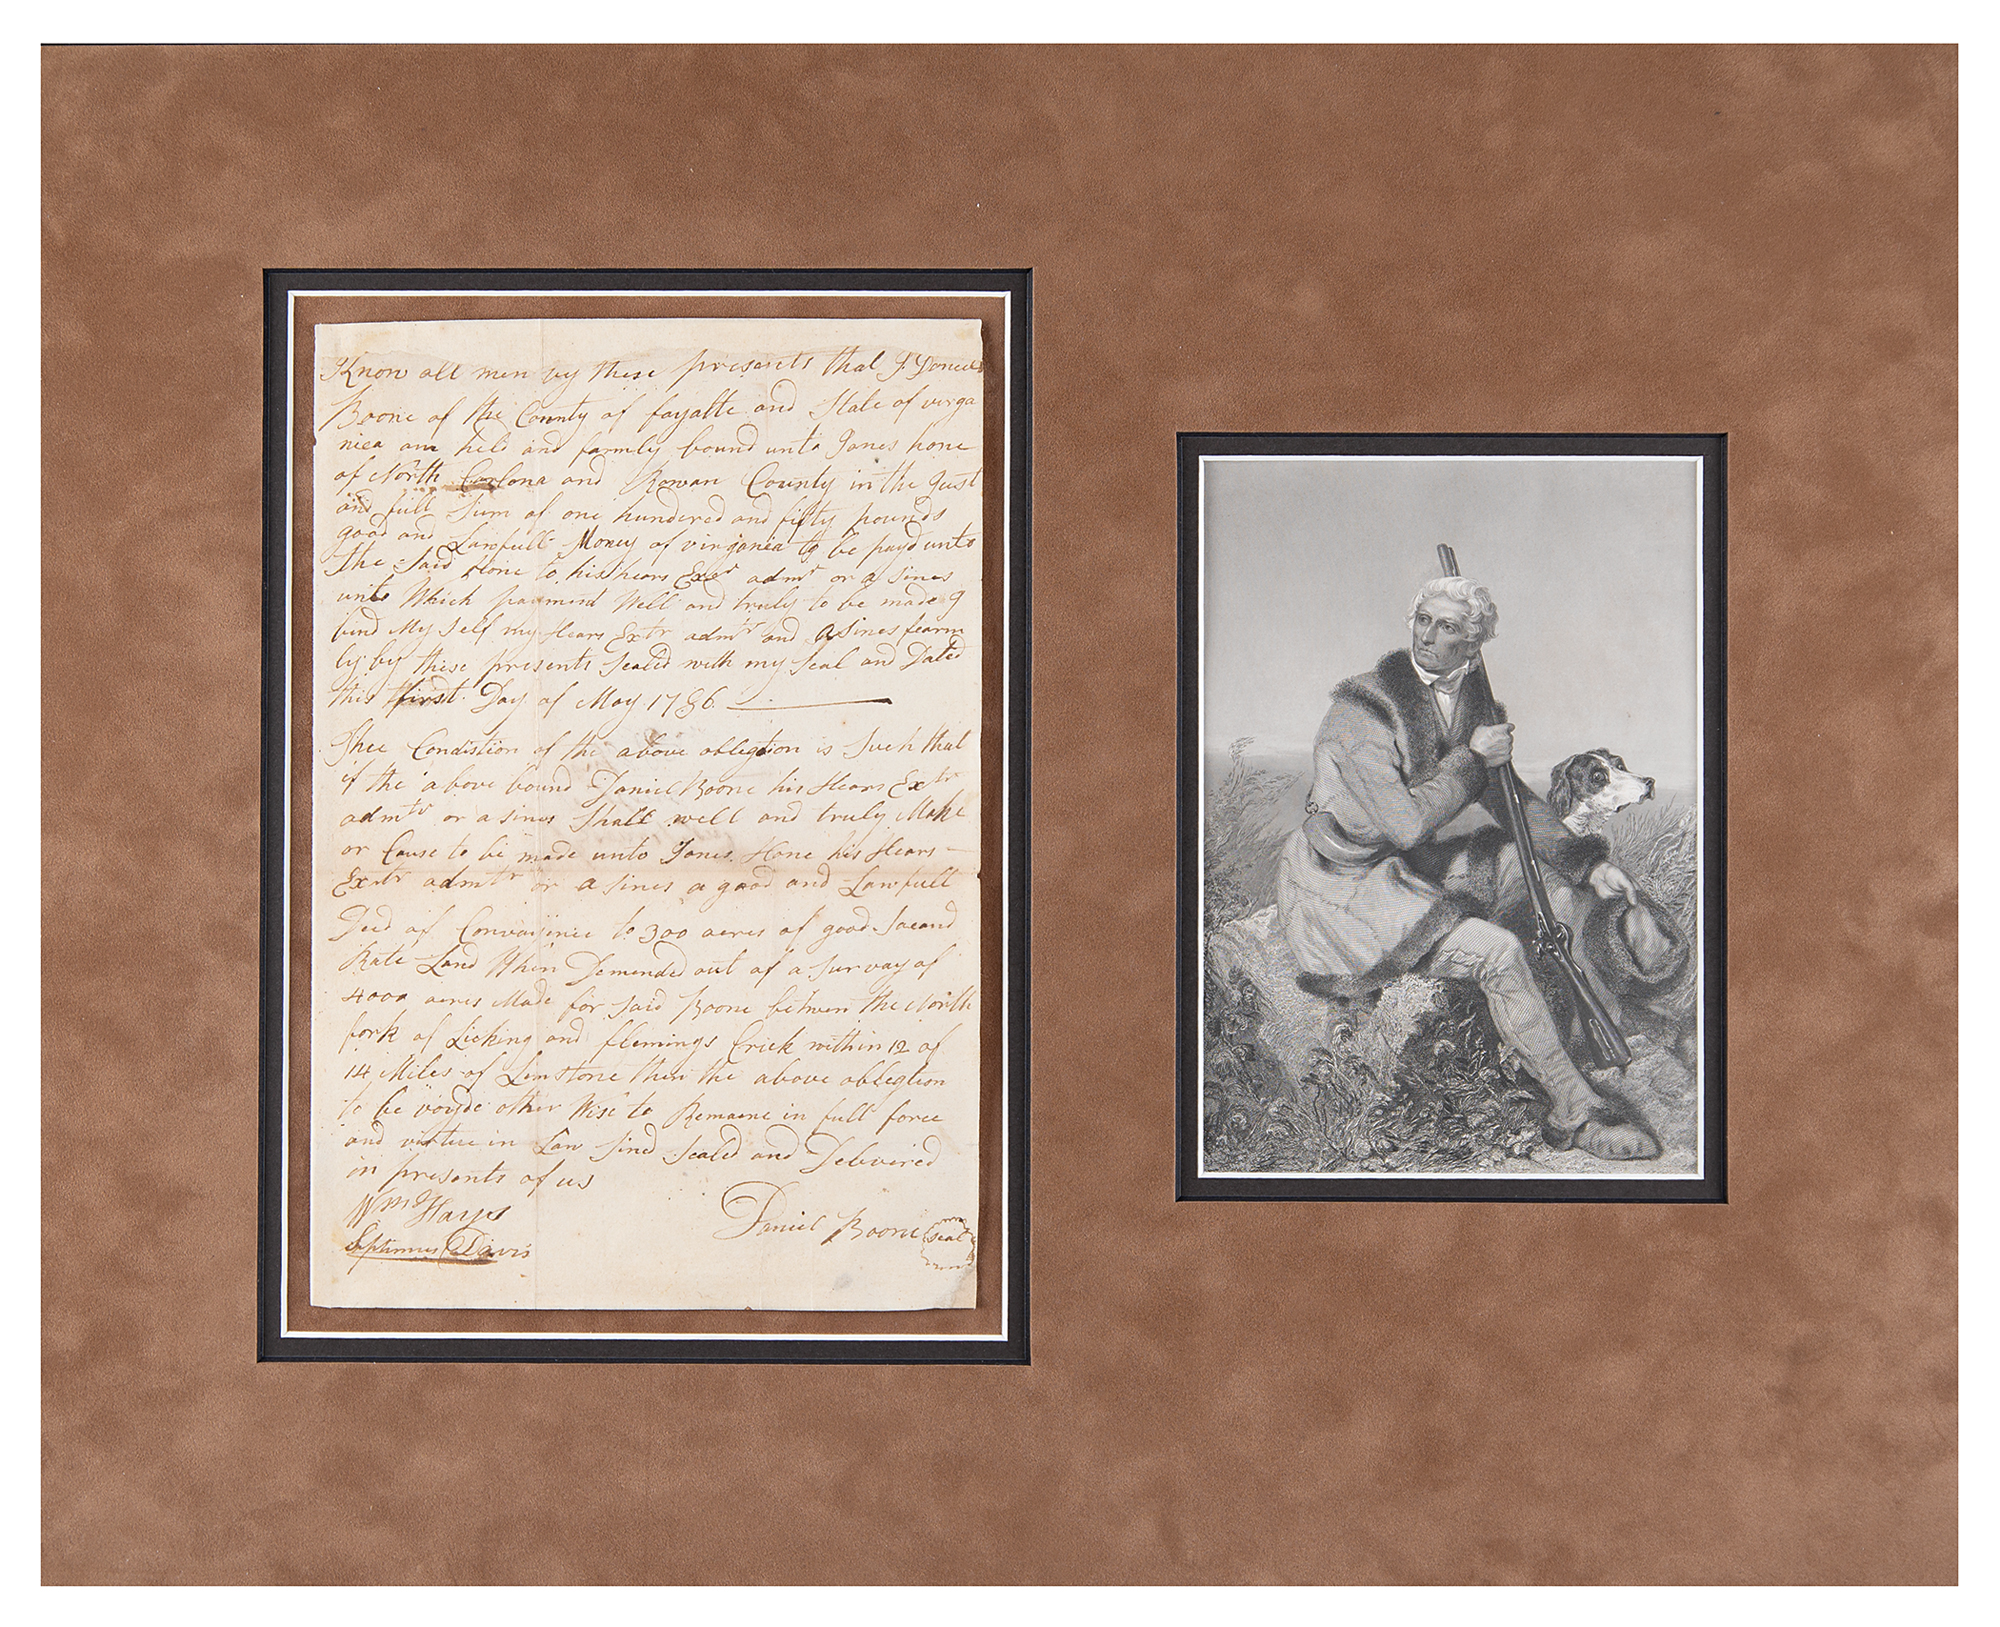 Know all men by these presants that I Daniel
Boone of the County of fayatte and State of virga
niea am held and farmly bound unto Jones hone
of North Carlona and Rowan County in the Just
and full Sum of one hundered and fifty pounds
good and Lawfull Money of virganiea to be payd unto
the Said Hone to his hears Exer admtr or a sines
unto Which payment Well and truly to be made I
bind My Self my Hears Extr admtr and a sines fearm
ly by these presents Sealed with my Seal and Dated
this first Day of May 1786
Thee Condistion of the above oblegtion is Such that
if the above bound Daniel Boone his Hears Extr
admtr or a sines Shall well and truly Make
or Cause to be made unto Jones Hone his Hears
Extr admtr or a sines a good and Lawfull
Deed of Convayince to 300 acres of good Sacand
Rate Land When Demended out of a Survay of
4000 acres Made for Said Boone betwen the North
fork of Licking and flemings Crick within 12 of
14 Miles of Limstone then the above oblegtion
to be voyde other Wise to Remaene in full force
and virtue in Law Sined Sealed and Delivired
in presents of us
Wm Hays
Septimus Davis
Daniel Boone seal